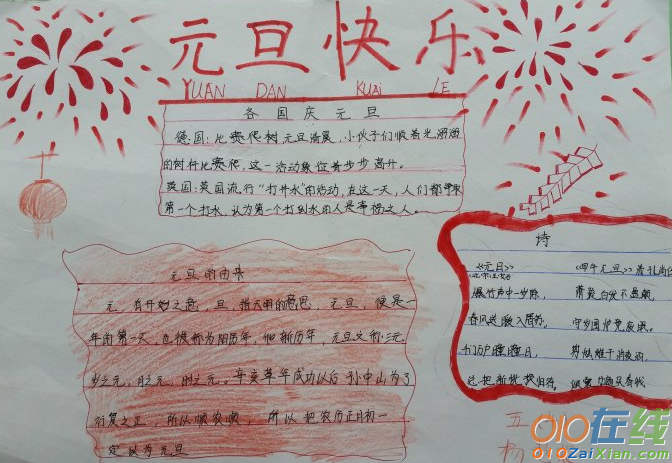 元旦快乐
YUAN DAN KUAI LE
各国庆元旦
德国:比赛爬树元旦清晨,小伙子们顺着光溜溜
的树杆比赛爬,这一活动象征着步步高升。
英国:英国流行“打井水”的活动,在这一天,人们都争取
第一个打水,认为第一个打到水的人是幸福之人。
元旦的由来
元,有开始之意,旦,指天明的意思,元旦,便是一
年的第一天,也被称为阳历年,
新历年,元旦又称三元,
岁之元,月之元,时之元。辛亥革命成功以后孙中山为了
行夏之正,所以顺农
,所以把农历正月初一
定
为元旦
诗
《元日》
爆竹声中一岁除,
春风送暖入屠苏,
千门万户曈曈日,
总把新桃换旧符。
《
元旦》
五
杨
010在线
010ZaiXian.com